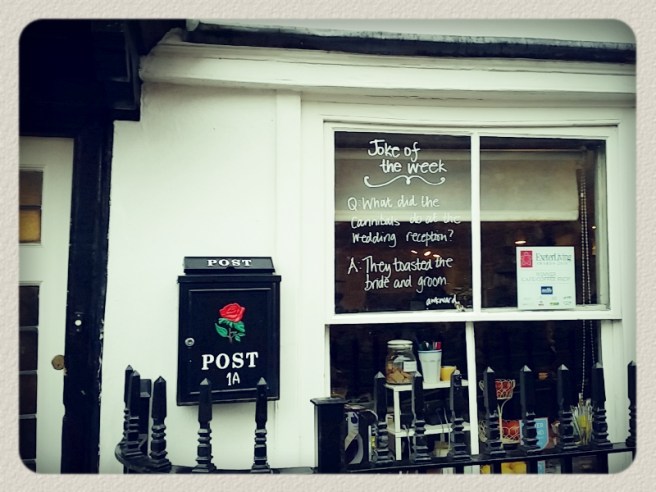 Joke of
the week
Q: What did the
Cannibals do at the
wedding reception?
A: They toasted the
bride and groom
awkward
ExeterLiving
POST
POST
1A